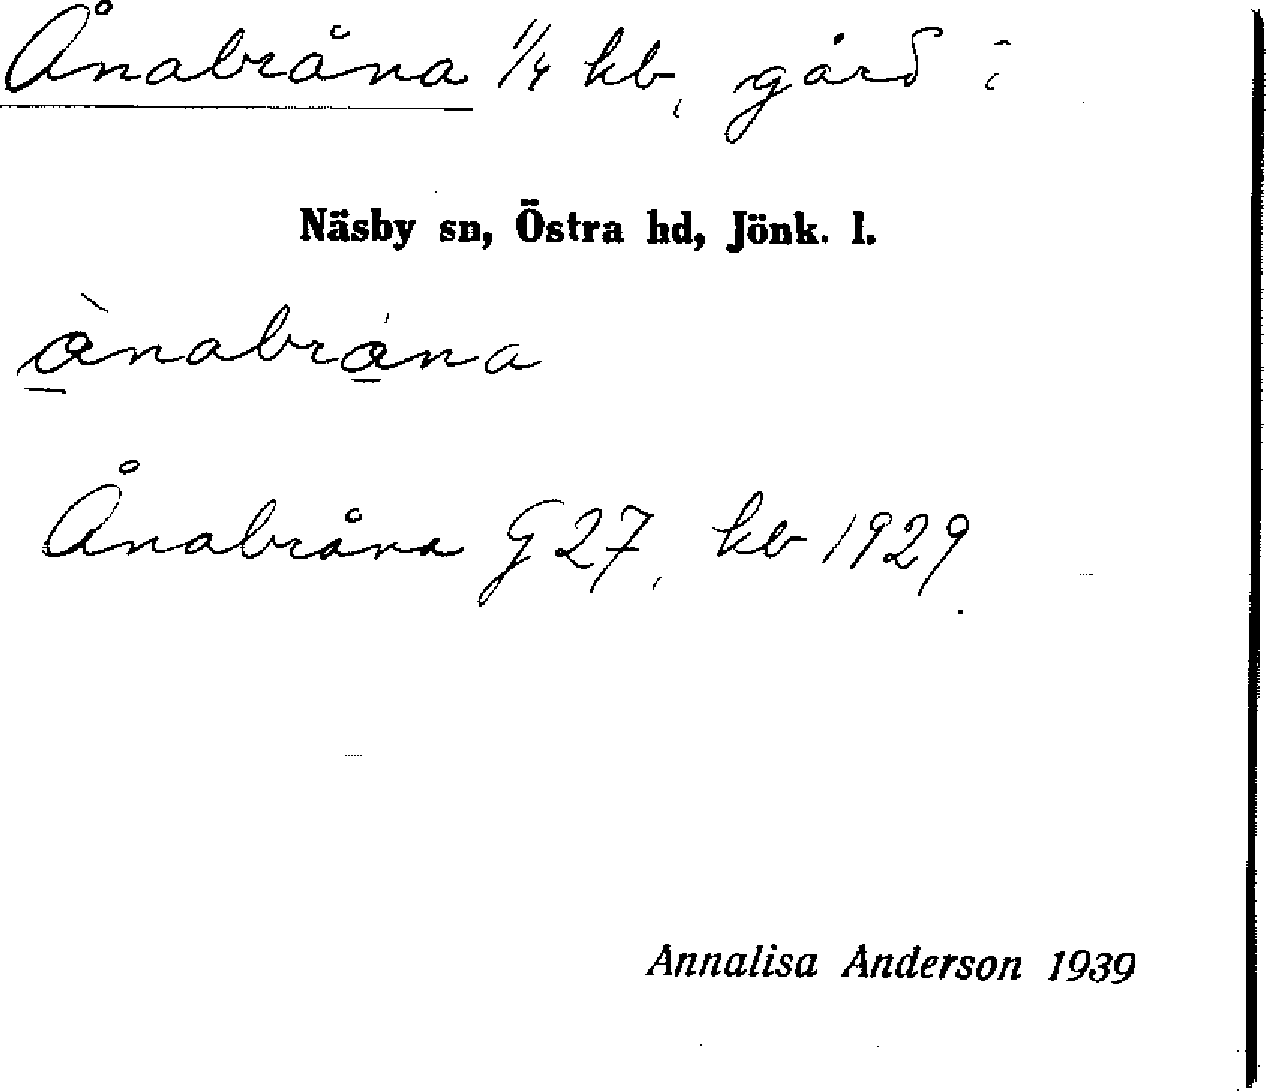 Ånabråna 1/4 kb, gård i
Näsby sn, Östra hd, Jönk. l.
ànabrána
Ånabråna G 27, kb 1929.
Annalisa Anderson 1939